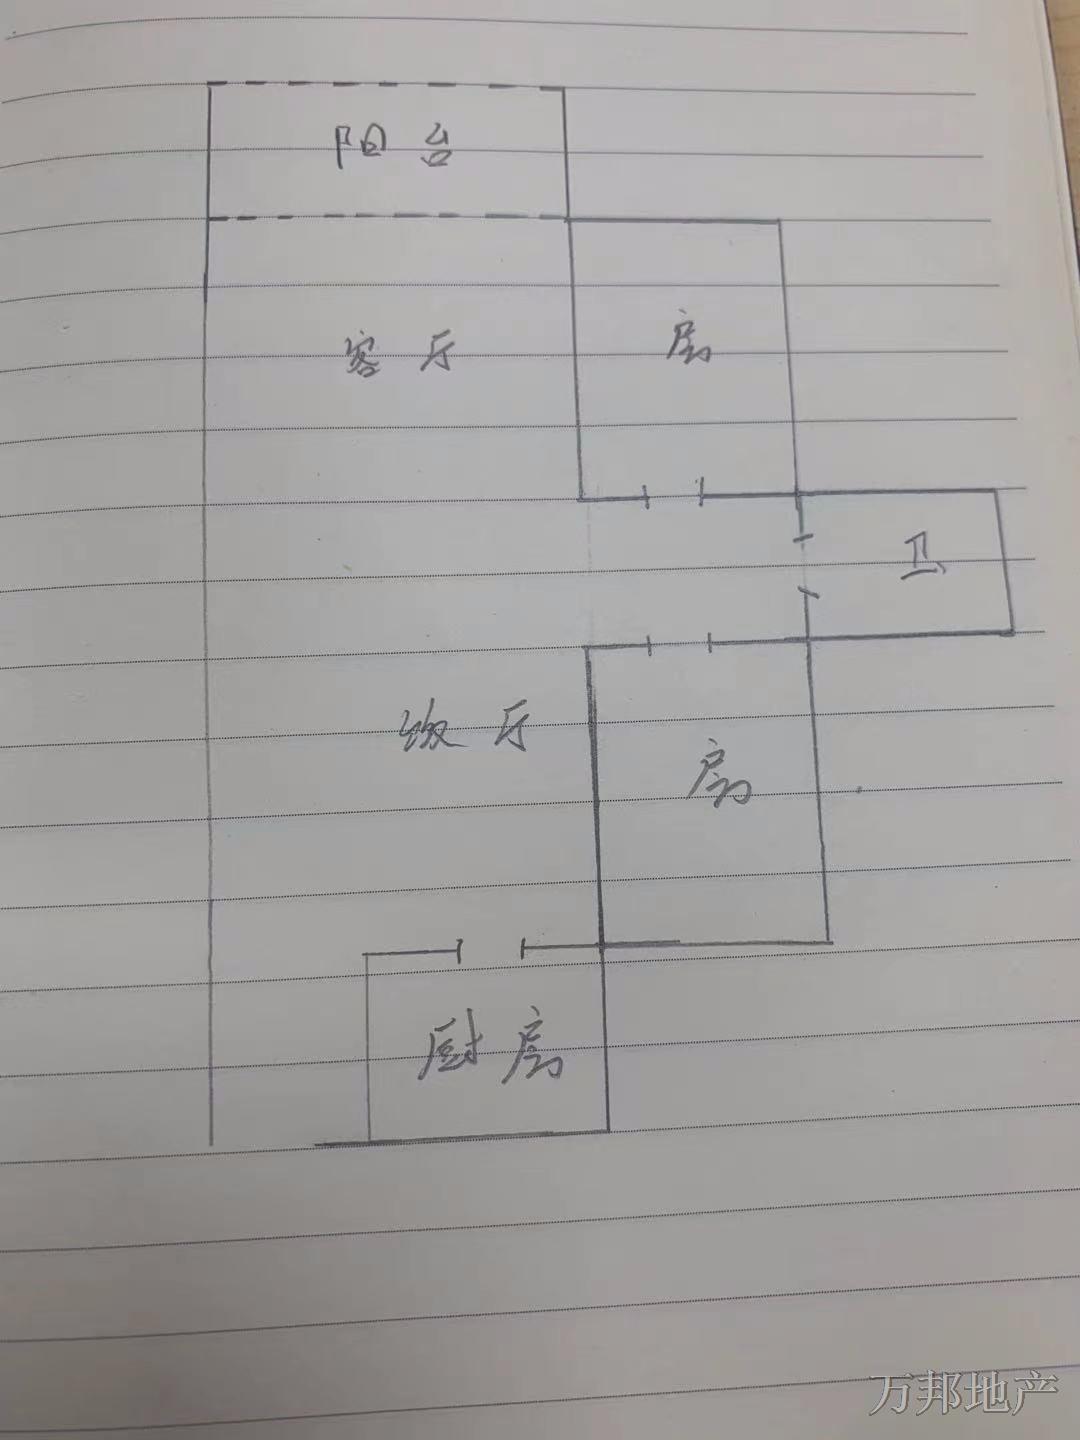 阳台
客厅
房
卫
饭厅
房
厨房
万邦地产